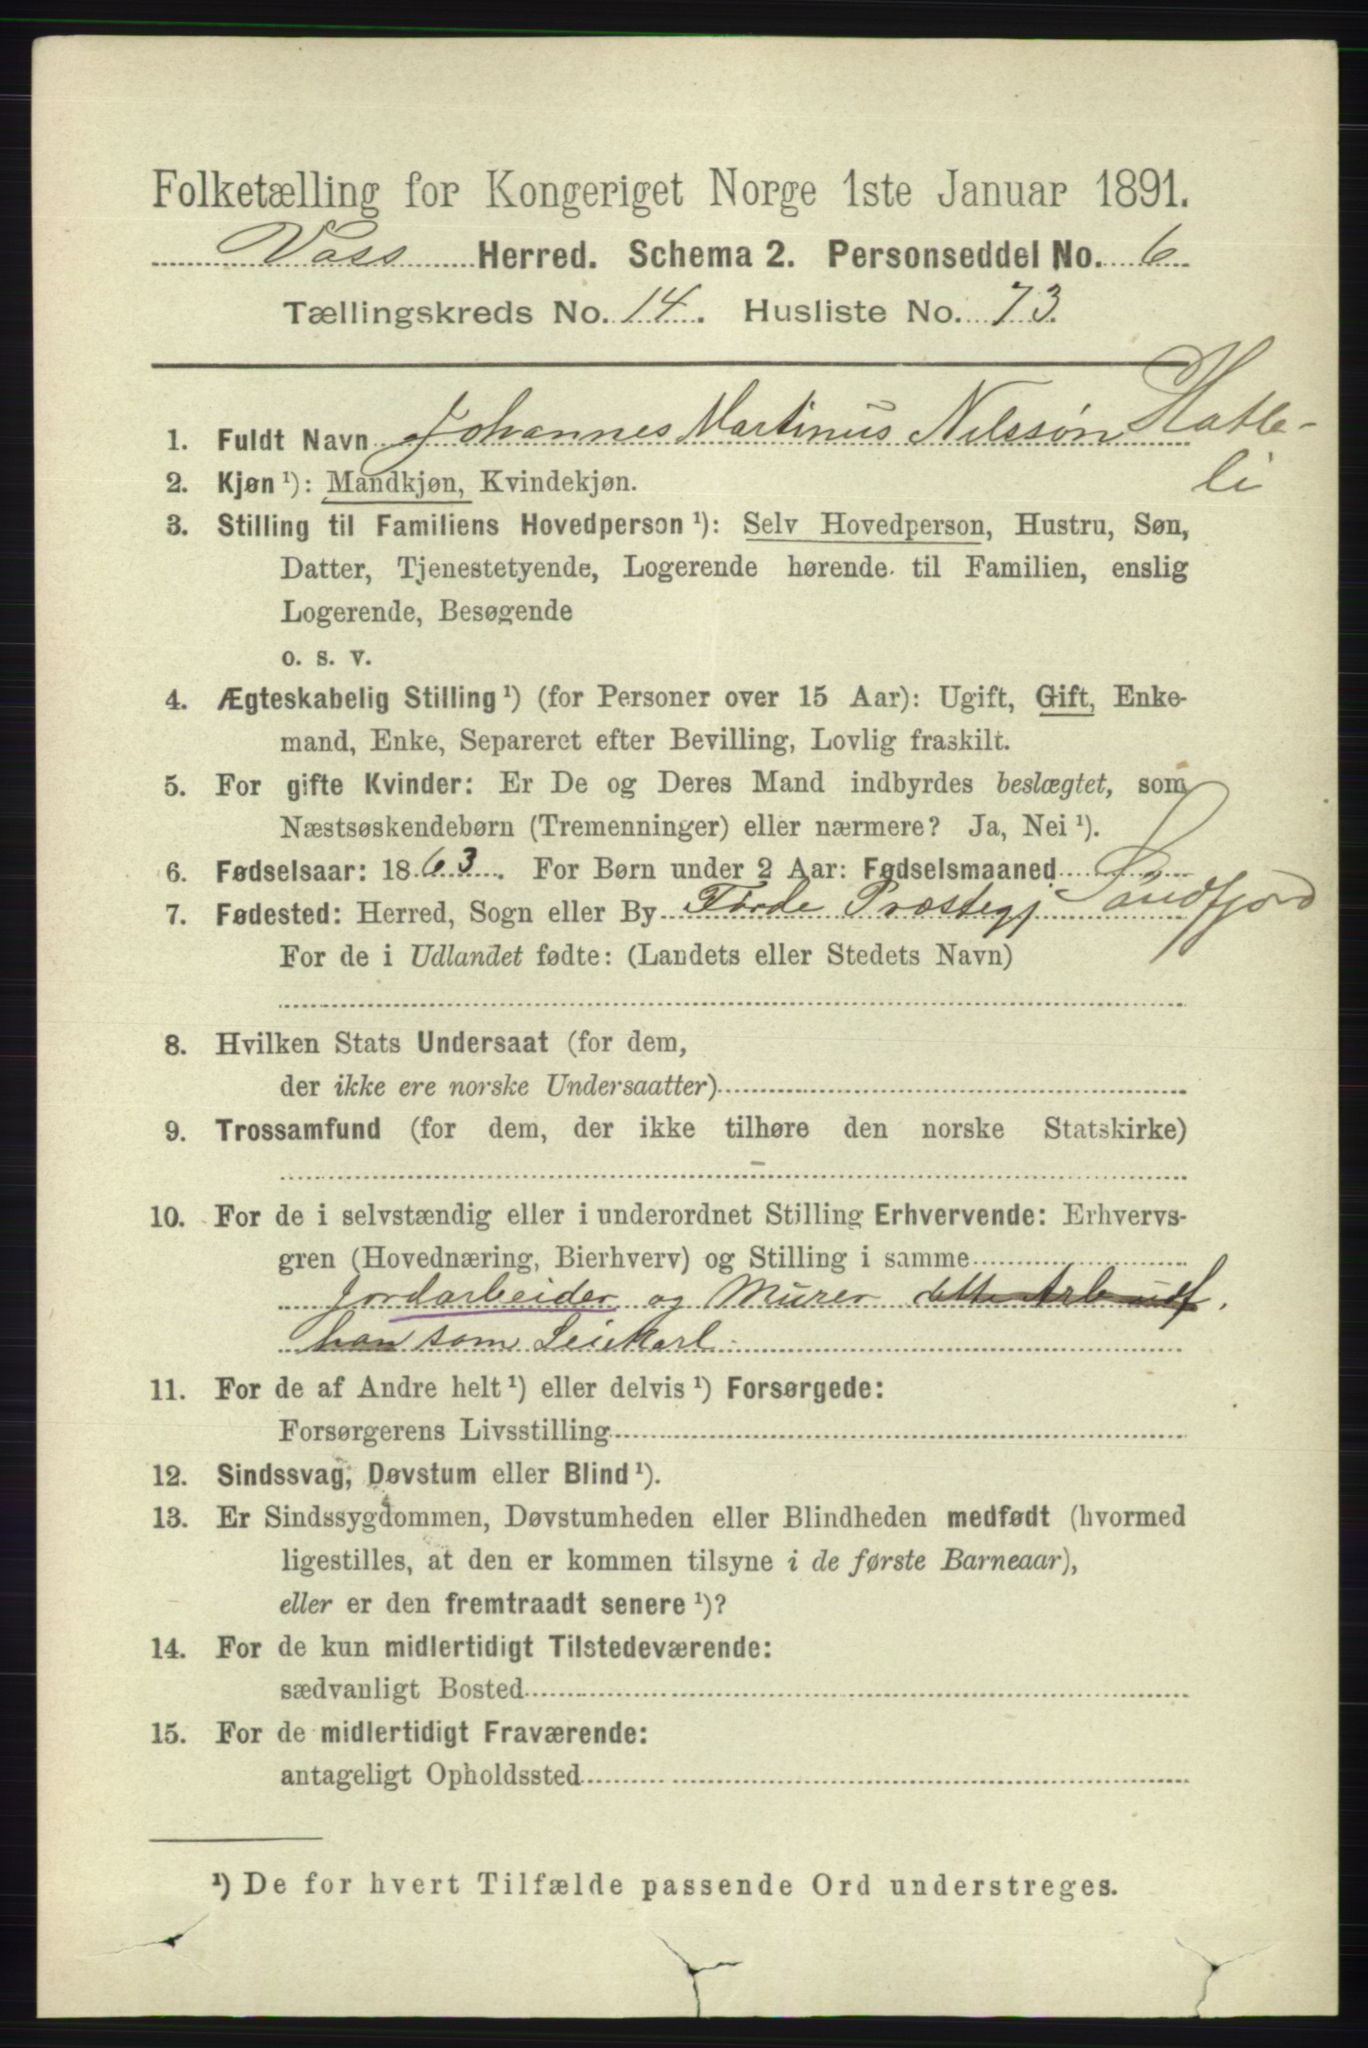 Folketælling for Kongeriget Norge 1ste Januar 1891.
Voss Herred. Schema 2. Personseddel No. 6
Tællingskreds No. 14. Husliste No. 73.
1. Fuldt Navn Johannes Martinus Nilssøn Hatle-
li
2. Kjøn ¹): Mandkjøn, Kvindekjøn.
3. Stilling til Familiens Hovedperson ¹): Selv Hovedperson, Hustru, Søn,
Datter, Tjenestetyende, Logerende hørende til Familien, enslig
Logerende, Besøgende
o. s. v.
4. Ægteskabelig Stilling ¹) (for Personer over 15 Aar): Ugift, Gift, Enke-
mand, Enke, Separeret efter Bevilling, Lovlig fraskilt.
5. For gifte Kvinder: Er De og Deres Mand indbyrdes beslægtet, som
Næstsøskendebørn (Tremenninger) eller nærmere? Ja, Nei ¹).
6. Fødselsaar: 1863. For Børn under 2 Aar: Fødselsmaaned
7. Fødested: Herred, Sogn eller By Förde Præstegj Søndfjord
For de i Udlandet fødte: (Landets eller Stedets Navn)
8. Hvilken Stats Undersaat (for dem,
der ikke ere norske Undersaatter)
9. Trossamfund (for dem, der ikke tilhøre den norske Statskirke)
10. For de i selvstændig eller i underordnet Stilling Erhvervende: Erhvervs-
gren (Hovednæring, Bierhverv) og Stilling i samme
Jordarbeider og Murer dette Arb udf.
han som Leiekarl.
11. For de af Andre helt ¹) eller delvis ¹) Forsørgede:
Forsørgerens Livsstilling
12. Sindssvag, Døvstum eller Blind ¹).
13. Er Sindssygdommen, Døvstumheden eller Blindheden medfødt (hvormed
ligestilles, at den er kommen tilsyne i de første Barneaar),
eller er den fremtraadt senere ¹)?
14. For de kun midlertidigt Tilstedeværende:
sædvanligt Bosted
15. For de midlertidigt Fraværende:
antageligt Opholdssted
¹) De for hvert Tilfælde passende Ord understreges.